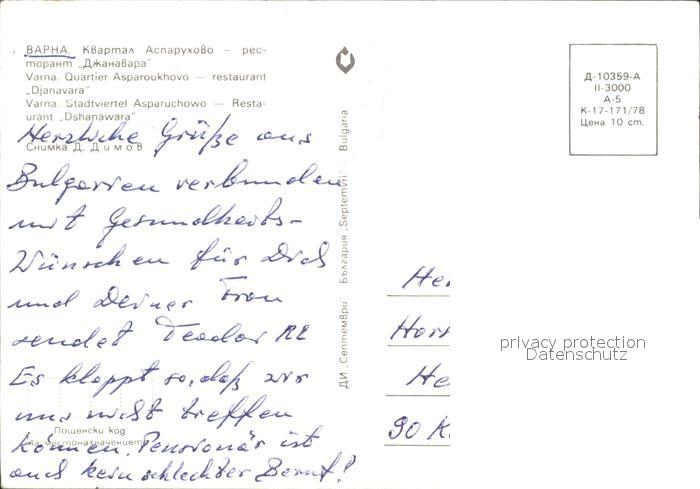 ВАРНА. Квартал Аспарухово – рес-
торант „Джанавара"
Varna. Quartier Asparoukhovo — restaurant
„Djanavara"
Varna. Stadtviertel Asparuchowo — Resta-
urant „Dshanawara"
Снимка Д. Димов
Herzliche Grüße aus
Bulgarien verbunden
mit Gesundheits-
Wünschen für Dich
und Deiner Frau
sendet Teodor
Es klappt so, daß wir
uns nicht treffen
können. Pensionär ist
auch kein schlechter Beruf!
Пощенски код
на местоназначението
ДИ „Септември" България „Septemvri" Bulgaria
Д-10359-А
II-3000
А-5
К-17-171/78
Цена 10 ст.
He
Hor
He
90 K.
privacy protection
Datenschutz